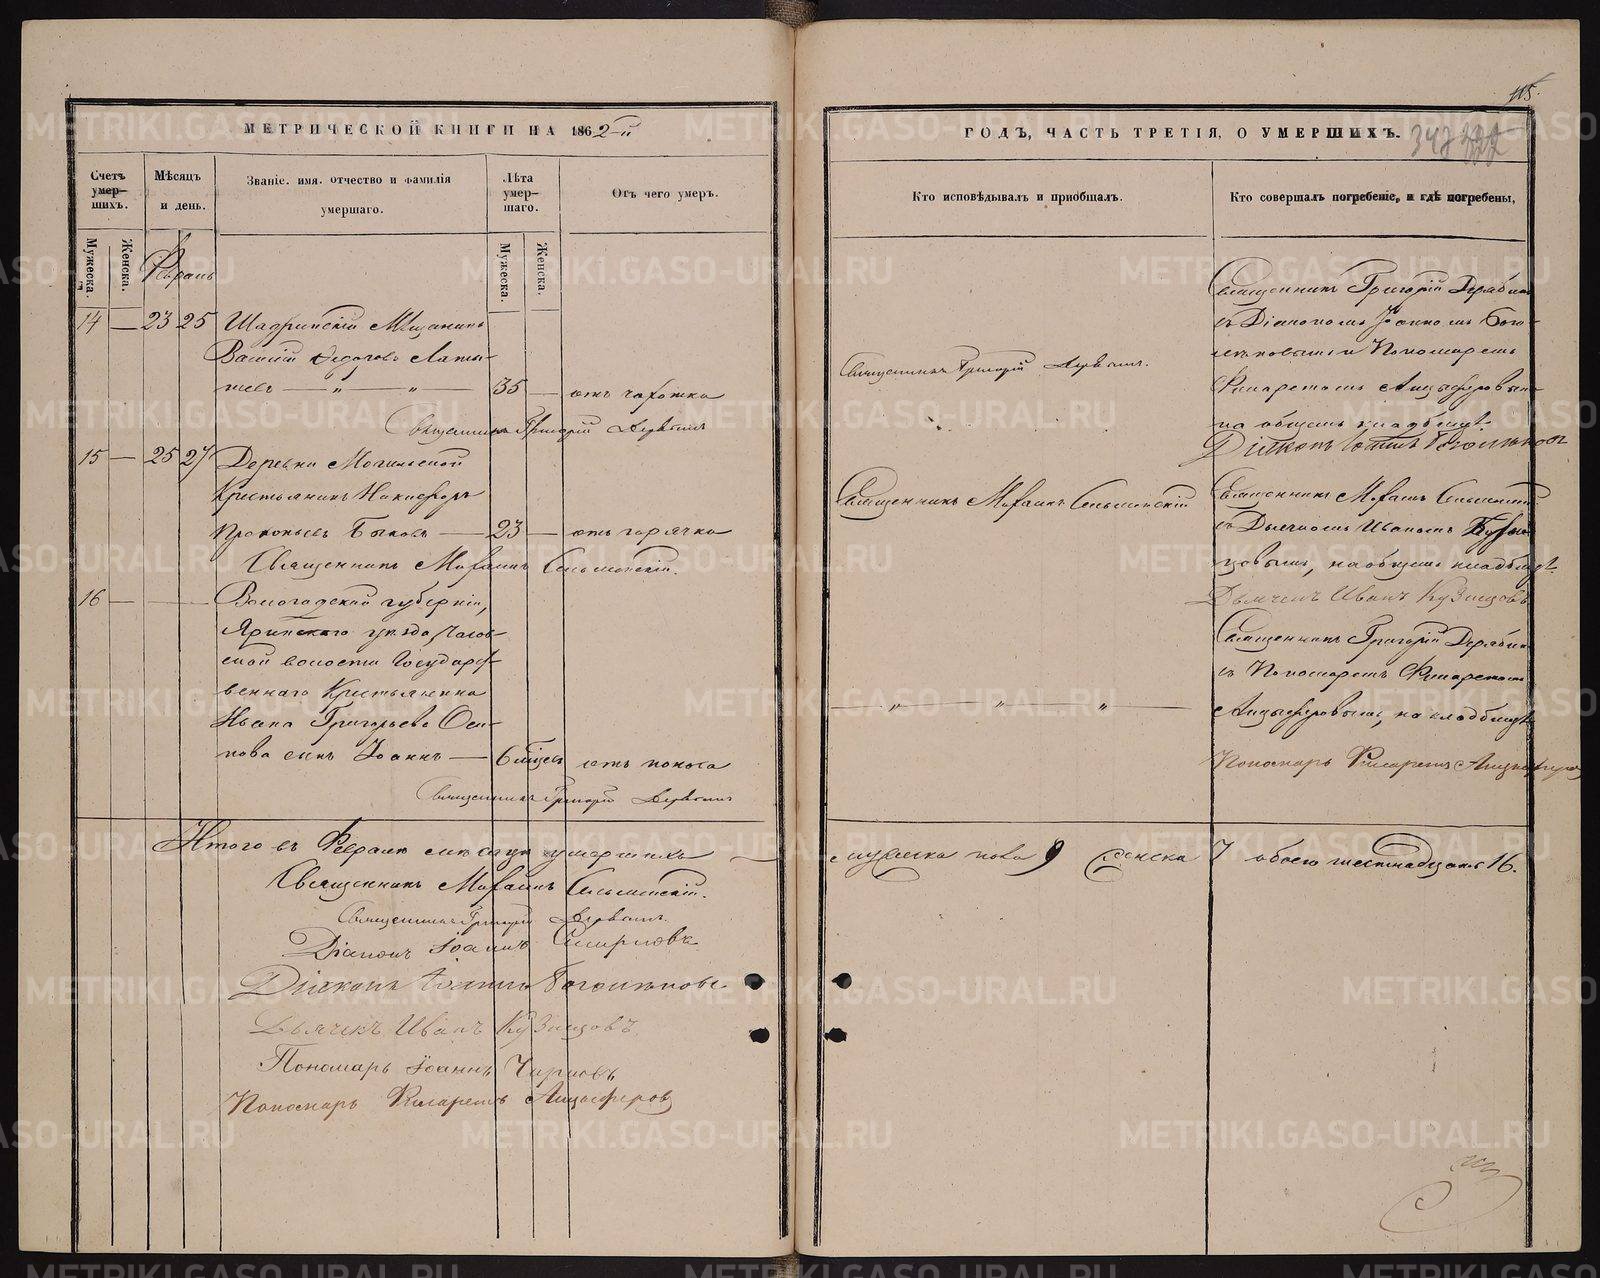 115.
МЕТРИЧЕСКОЙ КНИГИ НА 1862-й
ГОДЪ, ЧАСТЬ ТРЕТІЯ, О УМЕРШИХЪ.
Счетъ умер-шихъ.
Мѣсяцъ и день.
Званіе. имя. отчество и фамилія
умершаго.
Лѣта умер-шаго.
Отъ чего умеръ.
Кто исповѣдывалъ и пріобщалъ.
Кто совершалъ погребеніе, и гдѣ погребены,
Мужеска.
Женска.
Мужеска.
Женска.
Февраль
14 — 23 25 Шадринскій Мѣщанинъ
Василій Федоровъ Латы-
шевъ — „ — „ — 35 — отъ чахотки
Священникъ Григорій
Священникъ Григорій
Священникъ Григорій Дерябинъ
съ Діакономъ Іоанномъ Бого-
и Пономаремъ
Филаретомъ Анцыферовымъ
на общемъ кладбищѣ.
Діаконъ Іоаннъ
15 — 25 27 Деревни Могильской
Крестьянинъ Никифоръ
Прокопьевъ Быковъ — 23 — отъ горячки
Священникъ Михаилъ
Священникъ Михаилъ
Священникъ Михаилъ
съ Дьячкомъ Иваномъ Кузне-
цовымъ, на общемъ кладбищѣ.
Дьячекъ Иванъ Кузнецовъ
16 — Вологодской губерніи,
Яринскаго уѣзда,
ской волости Государст-
веннаго Крестьянина
Ивана Григорьева Оси-
пова сынъ Іоаннъ — 6 мѣсяц отъ поноса
Священникъ Григорій
— „ — „ — „ —
Священникъ Григорій Дерябинъ
съ Пономаремъ Филаретомъ
Анцыферовымъ, на кладбищѣ
Пономарь Филаретъ Анцыферовъ
Итого въ Февралѣ мѣсяцѣ умершихъ —
мужеска пола 9 женска 7 обоего шестнадцать 16.
Священникъ Михаилъ
Священникъ Григорій
Діаконъ Іоаннъ Смирновъ
Діаконъ Іоаннъ
Дьячекъ Иванъ Кузнецовъ.
Пономарь Іоаннъ Чирковъ
Пономарь Филаретъ Анцыферовъ
METRIKI.GASO-URAL.RU